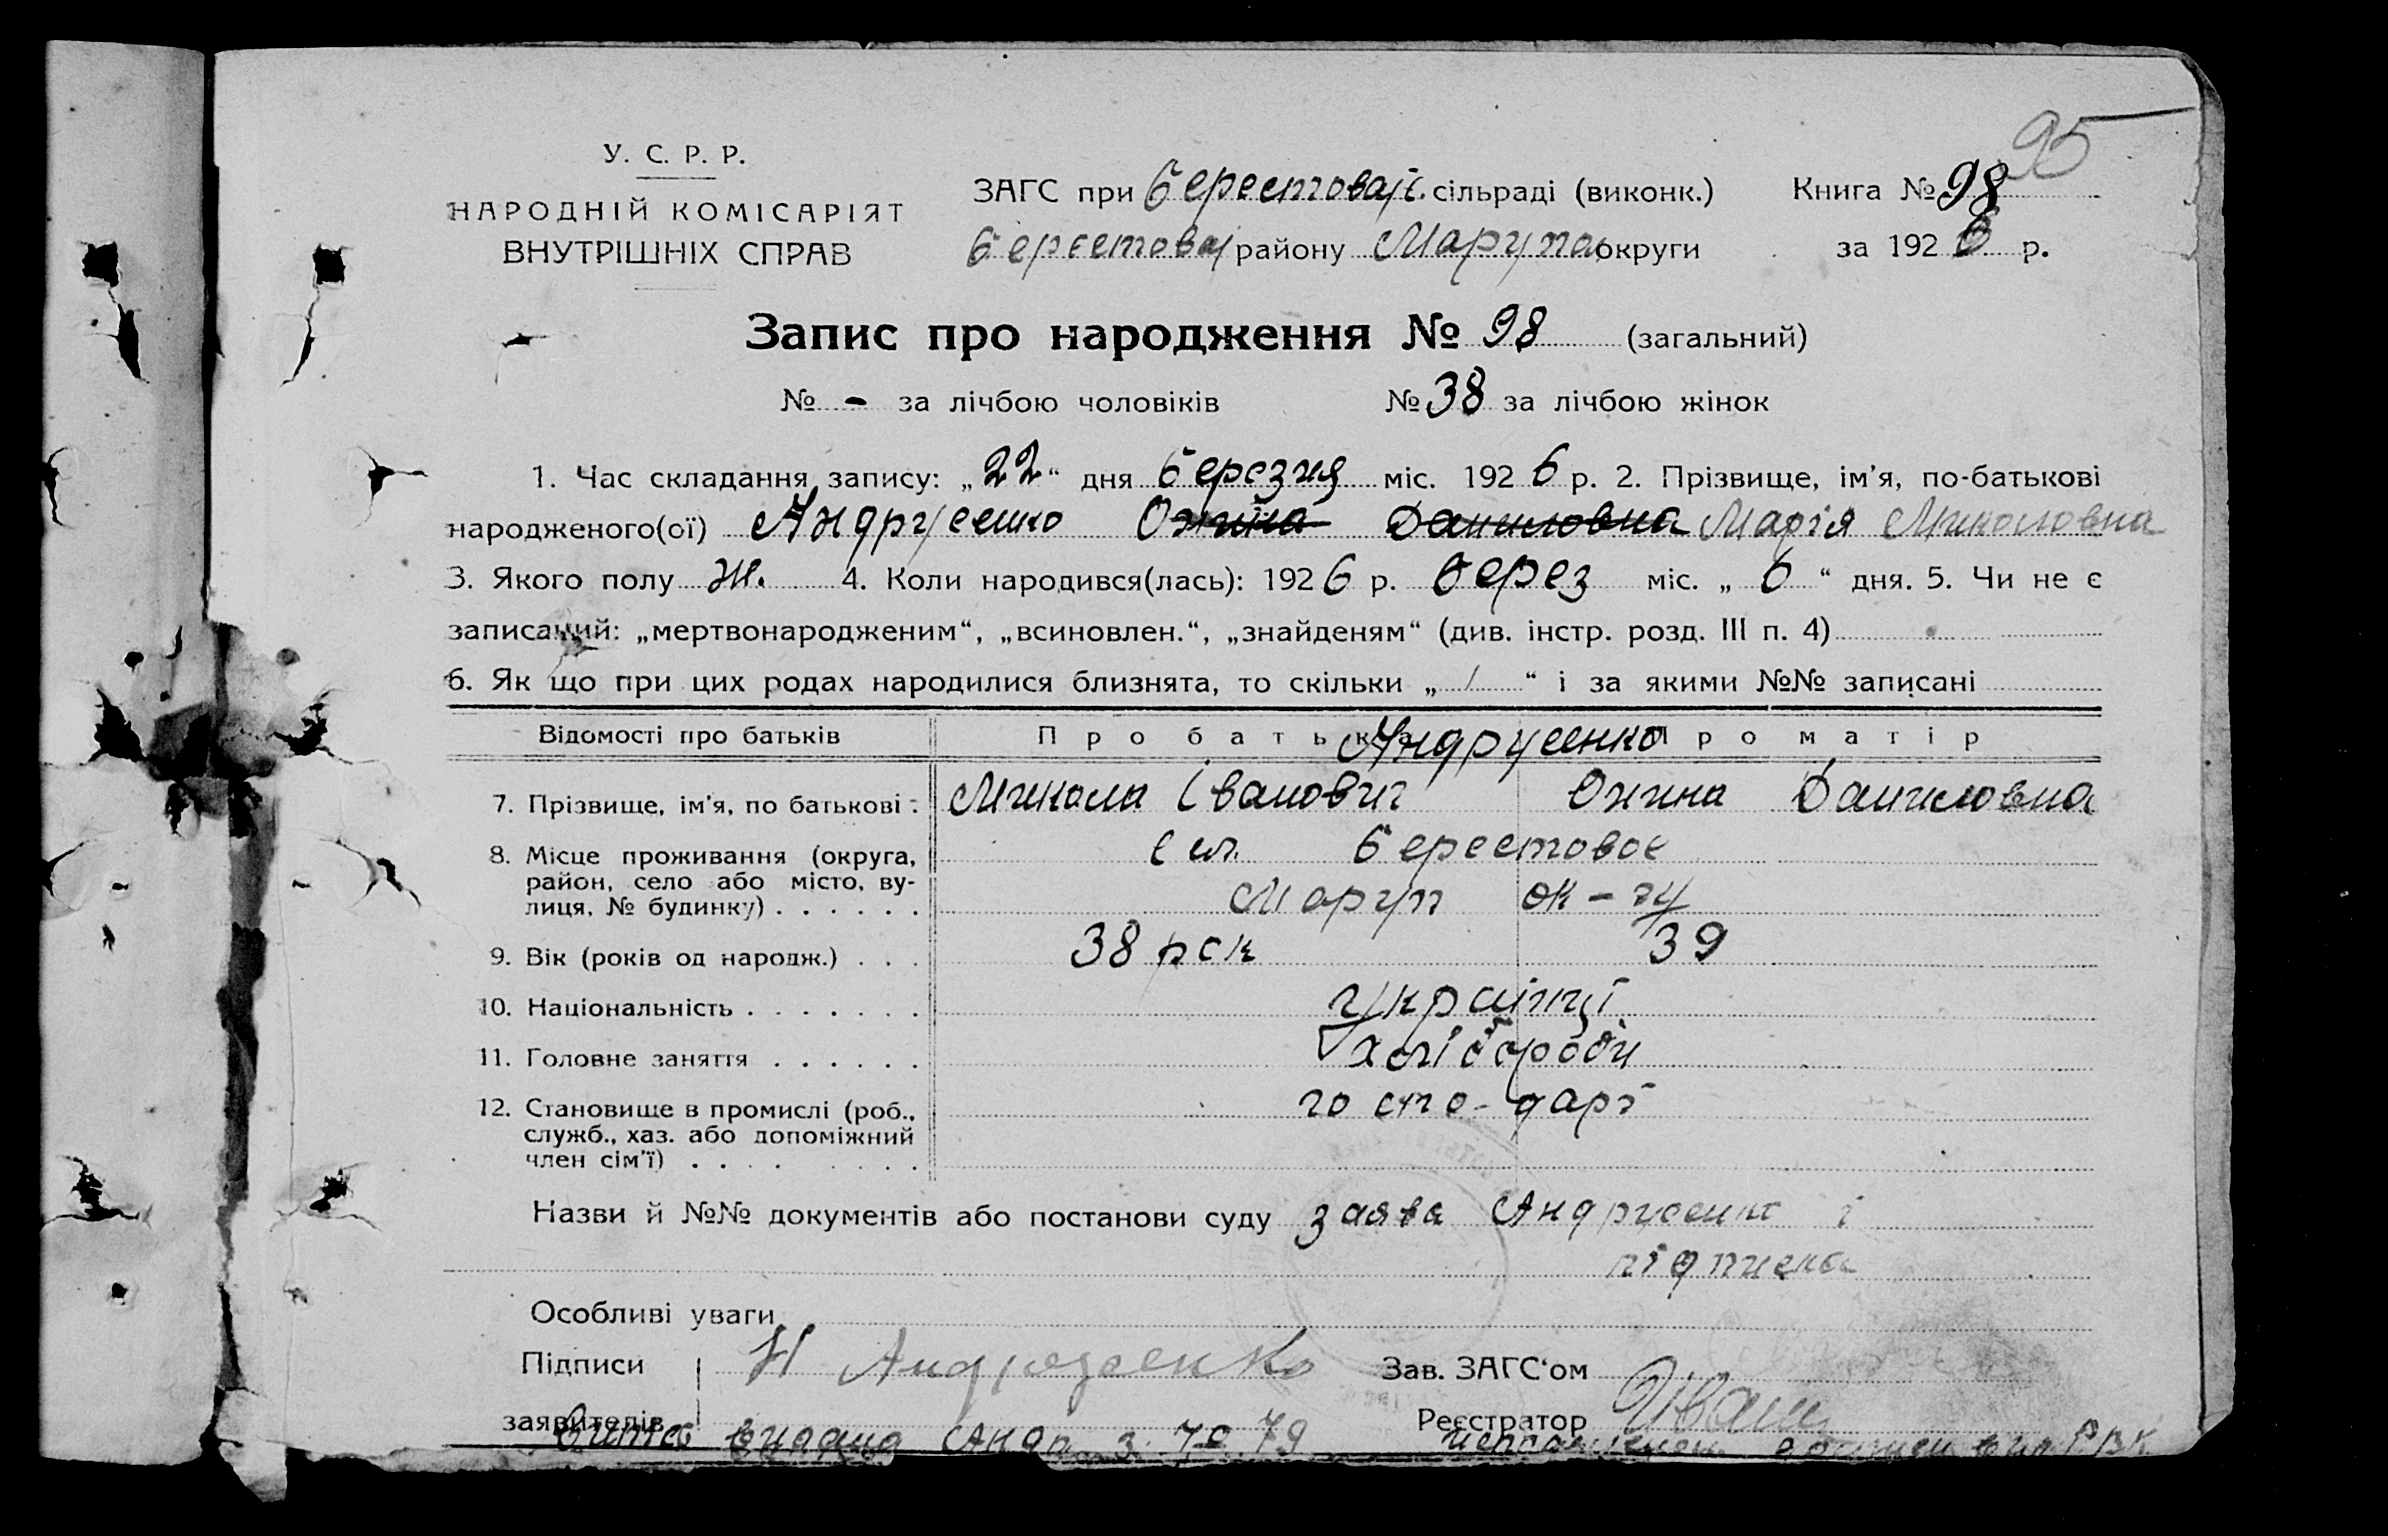 95
У. С. Р. Р.
НАРОДНІЙ КОМІСАРІЯТ
ВНУТРІШНІХ СПРАВ
ЗАГС при Берестовой. сільраді (виконк.) Книга № 98
Берестовой району Маруп округи за 1926 р.
Запис про народження № 98 (загальний)
№ - за лічбою чоловіків № 38 за лічбою жінок
1. Час складання запису: „22“ дня березня міс. 1926 р. 2. Прізвище, ім'я, по-батькові
народженого(ої) Андрусенко Ожина Даниловна Марія Миколовна
3. Якого полу ж. 4. Коли народився(лась): 1926 р. берез міс. „6“ дня. 5. Чи не є
записаний: „мертвонародженим“, „всиновлен.“, „знайденям“ (див. інстр. розд. III п. 4)
6. Як що при цих родах народилися близнята, то скільки „/“ і за якими №№ записані
Відомості про батьків Про батька Андрусенко Про матір
7. Прізвище, ім'я, по батькові: Микола Іванович Ожина Даниловна
8. Місце проживання (округа, сел. Берестовое
район, село або місто, ву-
лиця, № будинку) . . . . . . Маруп ок-гу
9. Вік (років од народж.) . . . 38 рок 39
10. Національність . . . . . . . українці
11. Головне заняття . . . . . . хлібороби
12. Становище в промислі (роб., госпо-дарі
служб., хаз. або допоміжний
член сім'ї) . . . . . . . .
Назви й №№ документів або постанови суду заява Андрусенко і
підписка
Особливі уваги
Підписи Н Андрусенко Зав. ЗАГС'ом
заявителів Реєстратор Иван
видана РВК